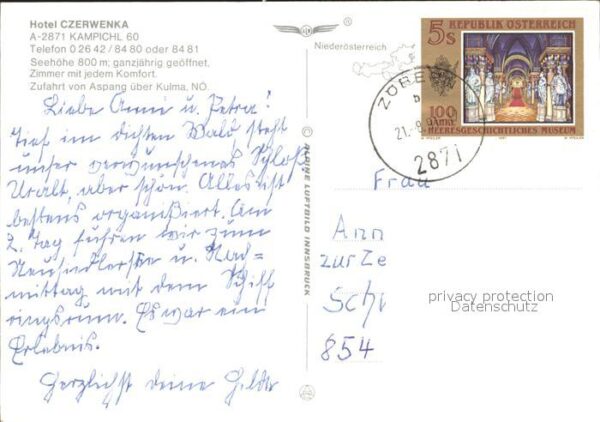 Hotel CZERWENKA
A-2871 KAMPICHL 60
Telefon 0 26 42 / 84 80 oder 84 81
Seehöhe 800 m; ganzjährig geöffnet.
Zimmer mit jedem Komfort.
Zufahrt von Aspang über Kulma, NÖ.
Liebe Anni u. Petra!
Tief im dichten Wald steht
unser verwunschenes Schloß
Uralt, aber schön. Alles ist
bestens organisiert. Am
2. Tag fuhren wir zum
Neusiedlersee u. Nach=
mittag mit dem Schiff
ringsum. Es war ein
Erlebnis.
Herzlichst deine Hilde
© ALPINE LUFTBILD INNSBRUCK
Niederösterreich
5s REPUBLIK ÖSTERREICH
100 JAHRE
HEERESGESCHICHTLICHES MUSEUM
ZÖBE
b
21.-8.9
2871
Frau
Ann
zur Ze
Schr
854
privacy protection
Datenschutz